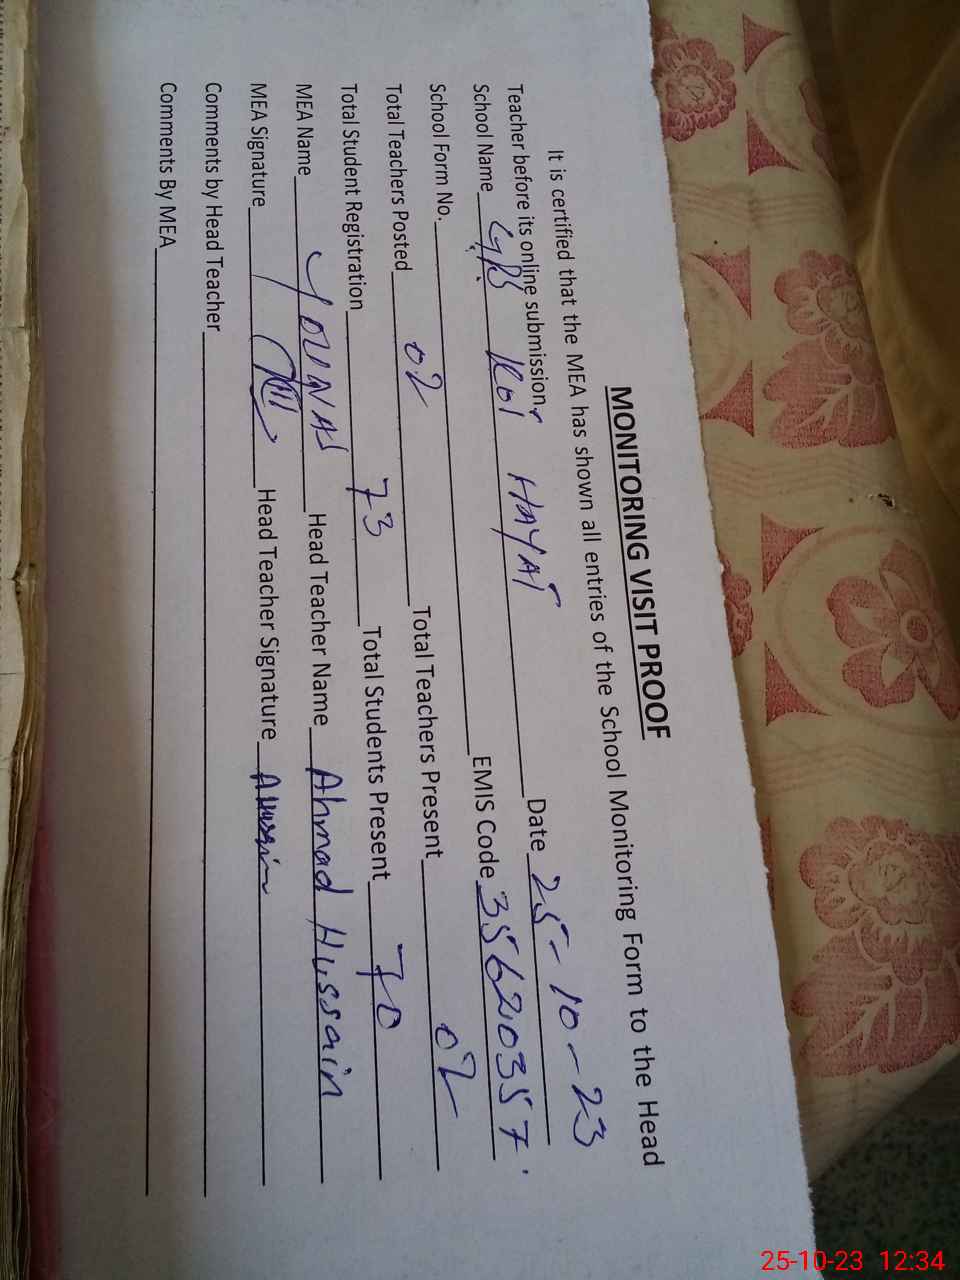 MONITORING VISIT PROOF
It is certified that the MEA has shown all entries of the School Monitoring Form to the Head
Teacher before its online submission.
School Name GPS KOT HAYAT Date 25-10-23
School Form No. EMIS Code 35620357
Total Teachers Posted 02 Total Teachers Present 02
Total Student Registration 73 Total Students Present 70
MEA Name YOUNAS Head Teacher Name Ahmad Hussain
MEA Signature Head Teacher Signature AHussain
Comments by Head Teacher
Comments By MEA
25-10-23 12:34